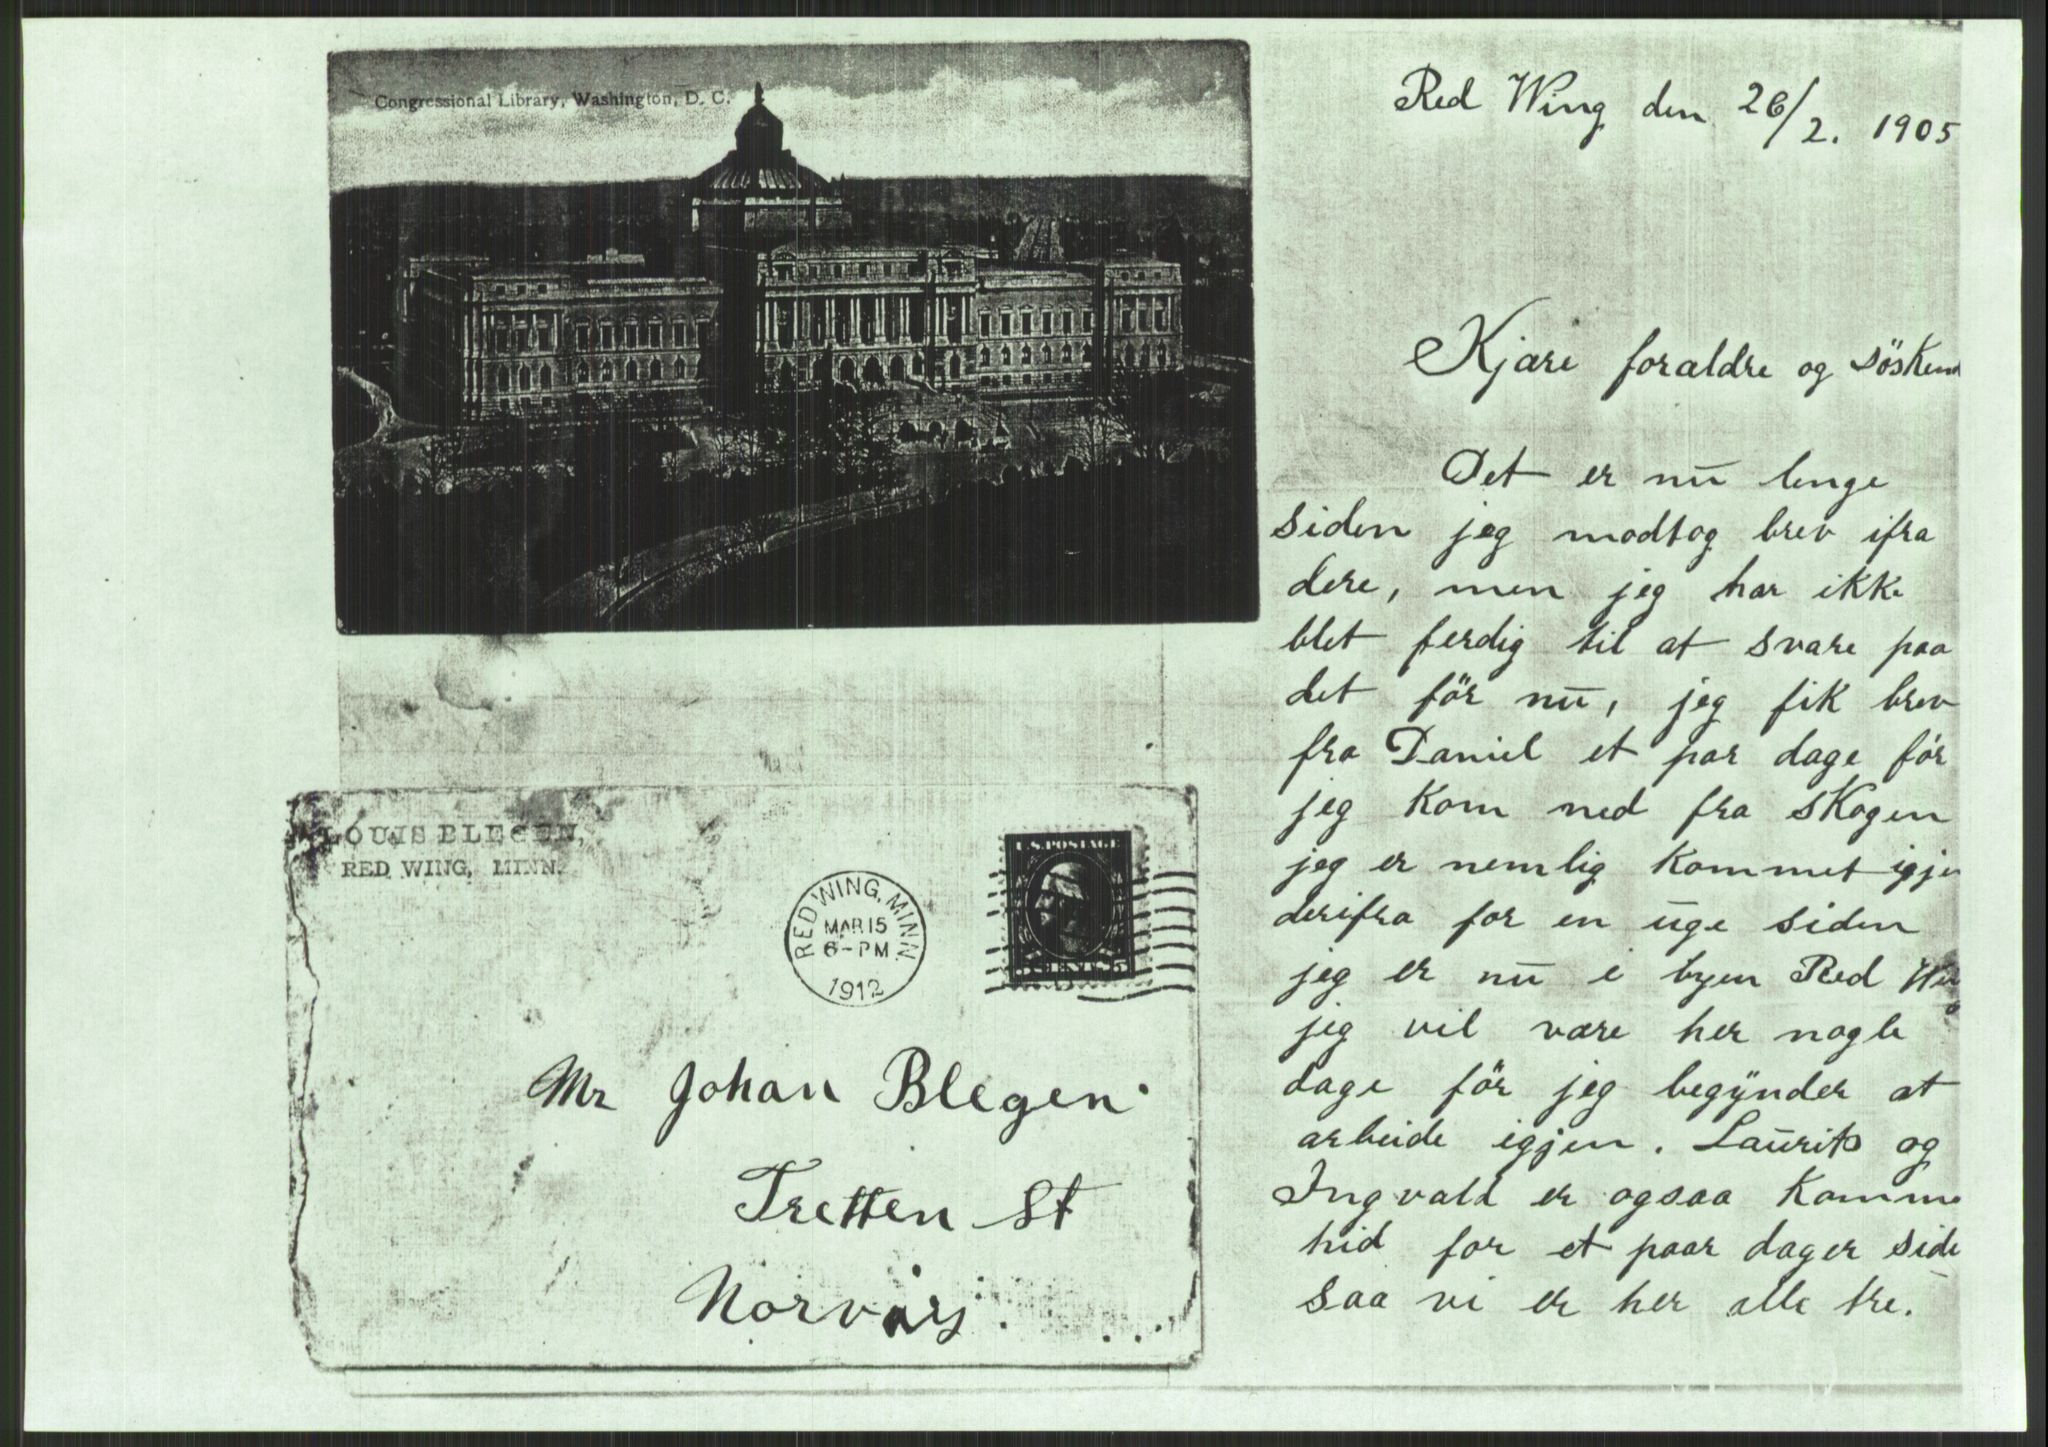 Congressional Library, Washington, D. C.
LOUIS BLEGEN,
RED WING, MINN.
RED WING, MINN.
MAR 15
6-PM
1912
U.S. POSTAGE
5 CENTS 5
Mr Johan Blegen.
Tretten St
Norvårj.
Red Wing den 26/2. 1905
Kjære forældre og söskend
Det er nū lenge
siden jeg modtog brev ifra
dere, men jeg har ikke
blet ferdig til at svare paa
det för nū, jeg fik brev
fra Daniel et par dage för
jeg kom ned fra skogen
jeg er nemlig kommet igje
derifra for en ūge siden
jeg er nū i byen Red
jeg vil være her nogle
dage för jeg begÿnder at
arbeide igjen. Laūrits og
Ingvald er ogsaa komme
hid for et paar dager side
saa vi er her alle tre.